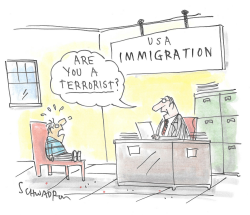 USA
IMMIGRATION
ARE
YOU A
TERRORIST?
SCHWADRON